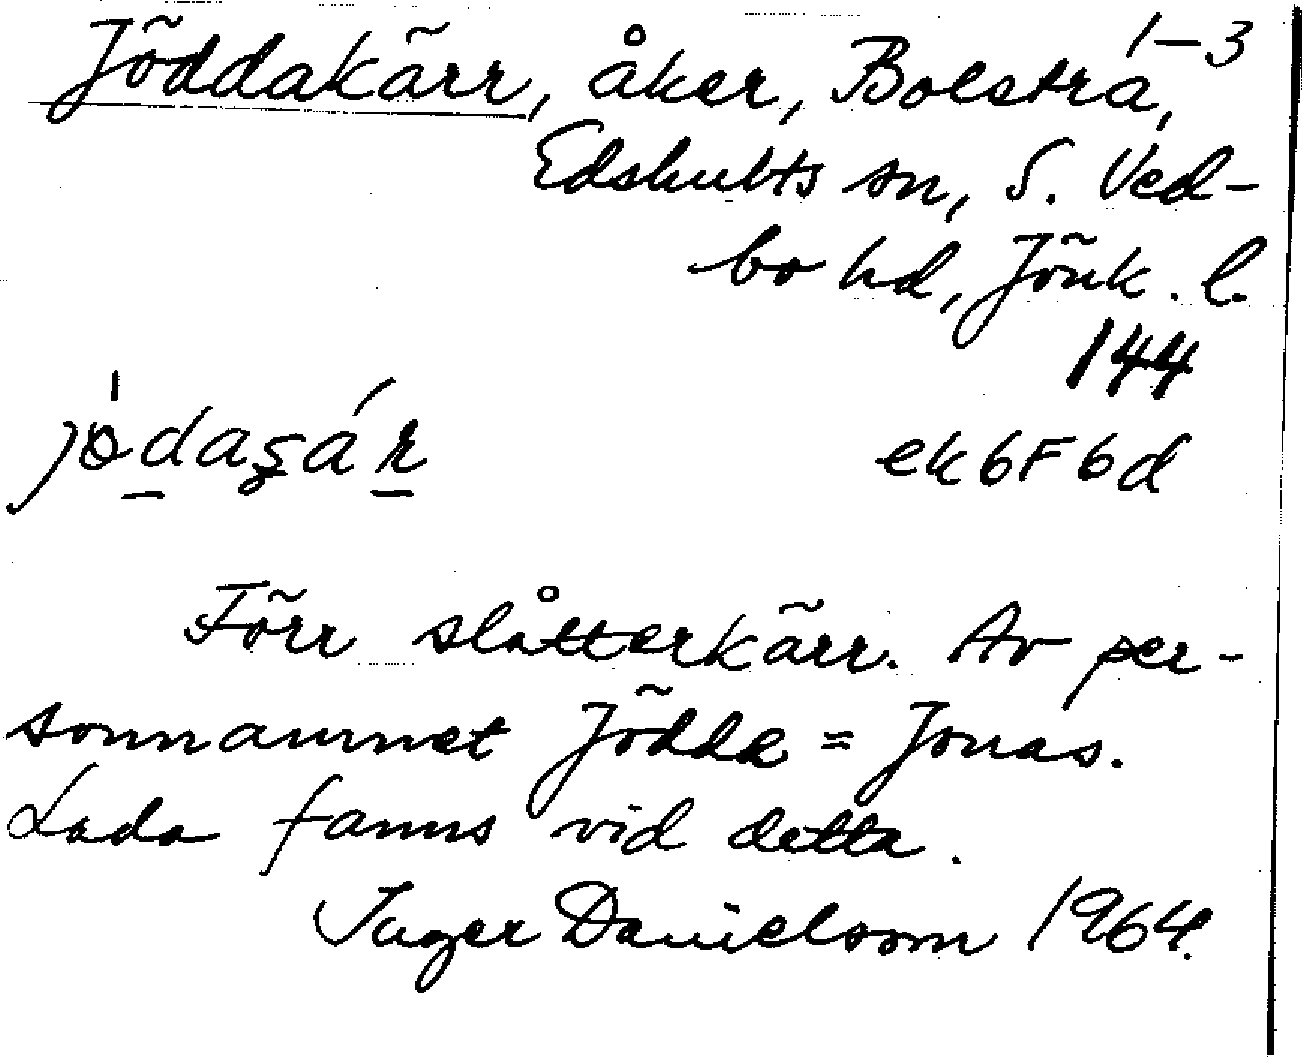 Jöddakärr, åker, Bolstra, 1-3
Edshults sn, S. Ved-
bo hd, Jönk. l.
144
ek6F6d
Förr slåtterkärr. Av per-
sonnamnet Jödde = Jonas.
Lada fanns vid detta.
Inger Danielsson 1964.